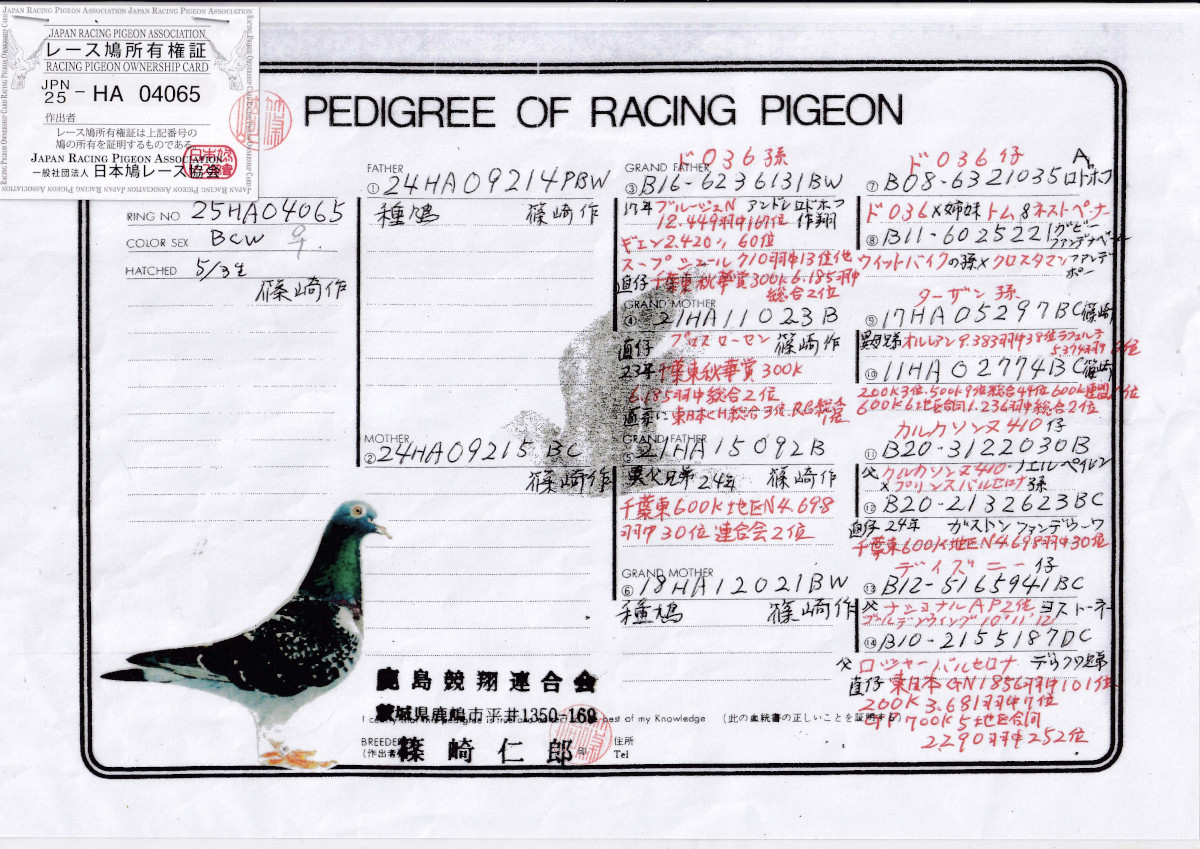 JAPAN RACING PIGEON ASSOCIATION JAPAN RACING PIGEON ASSOCIATION
JAPAN RACING PIGEON ASSOCIATION
レース鳩所有権証
RACING PIGEON OWNERSHIP CARD
JPN 25 - HA 04065
作出者
レース鳩所有権証は上記番号の
鳩の所有を証明するものである。
JAPAN RACING PIGEON ASSOCIATION
一般社団法人 日本鳩レース協会
PEDIGREE OF RACING PIGEON
RING NO 25HA04065
COLOR SEX BCW ♀
HATCHED 5/3生
篠崎作
FATHER
① 24HA09214PBW
種鳩 篠崎作
MOTHER
② 24HA09215 BC
篠崎作
ド036孫
GRAND FATHER
③ B16-6236131BW
17年 ブルージュN アンドレロドホフ
12.449羽中167位 作翔
ギエン2.420〃60位
スープシュール710羽中13位他
直仔千葉東秋華賞300K6.185羽中
総合2位
GRAND MOTHER
④ 21HA11023B
直仔 篠崎作
23年千葉東秋華賞300K
6.185羽中総合2位
東日本CH総合3位
GRAND FATHER
⑤ 21HA15092B
異父兄弟24年 篠崎作
千葉東600K地区N4.698
羽中30位連合会2位
GRAND MOTHER
⑥ 18HA12021BW
種鳩 篠崎作
ド036仔
⑦ B08-6321035 ロドホフ
ド036×姉妹トム&ネストペナー
⑧ B11-6025221
ウィットバイクの孫×クロスタマン
ターザン孫
⑨ 17HA05297BC 篠崎
オルレアン9.383羽中38位
⑩ 11HA02774BC 篠崎
200K3位.500K9位総合44位600K連盟
600K6地区合同1.236羽中総合2位
カルカソンヌ410仔
⑪ B20-3122030B
父カルカソンヌ410 ノエルペイレン
×プリンスバルセロナ孫
⑫ B20-2132623BC
直仔24年 ガストンファンデワーワ
千葉東600K地区N4.698羽中30位
ディズニー仔
⑬ B12-5165941BC
父ナショナルAP2位 ヨストーネ
ゴールデンウイング'10'11'12
⑭ B10-2155187DC
父ロッシャーバルセロナ
直仔東日本GN1856羽中101位
200K3.681羽中7位
700K5地区合同
2290羽中252位
鹿島競翔連合会
茨城県鹿嶋市平井1350-169
best of my Knowledge (此の血統書の正しいことを証明する)
BREEDER
(作出者) 篠崎仁郎 印
住所
Tel